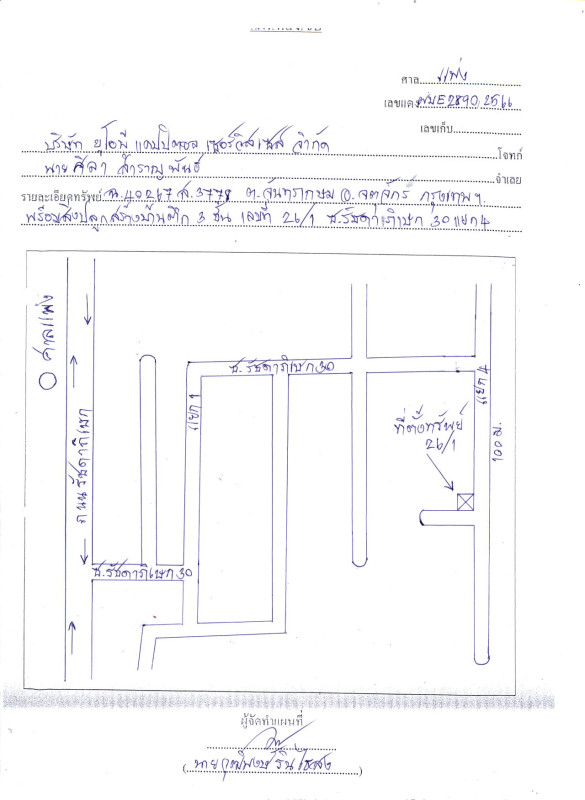 ศาล แพ่ง
เลขแดง ผบE2890/2566
เลขเก็บ
บริษัท ยูโอบี แคปปิตอล เซอร์วิสเซส จำกัด โจทก์
นาย ศิลา สำราญพันธ์ จำเลย
รายละเอียดทรัพย์ ฉ.40267 ส.3778 ต.จันทรเกษม อ.จตุจักร กรุงเทพฯ
พร้อมสิ่งปลูกสร้างบ้านตึก 3 ชั้น เลขที่ 26/1 ซ.รัชดาภิเษก 30 แยก 4
ศาลแพ่ง
ถนนรัชดาภิเษก
ซ.รัชดาภิเษก 30
แยก 1
แยก 4
ที่ตั้งทรัพย์
26/1
100 ม.
ซ.รัชดาภิเษก 30
ผู้จัดทำแผนที่
(นาย)